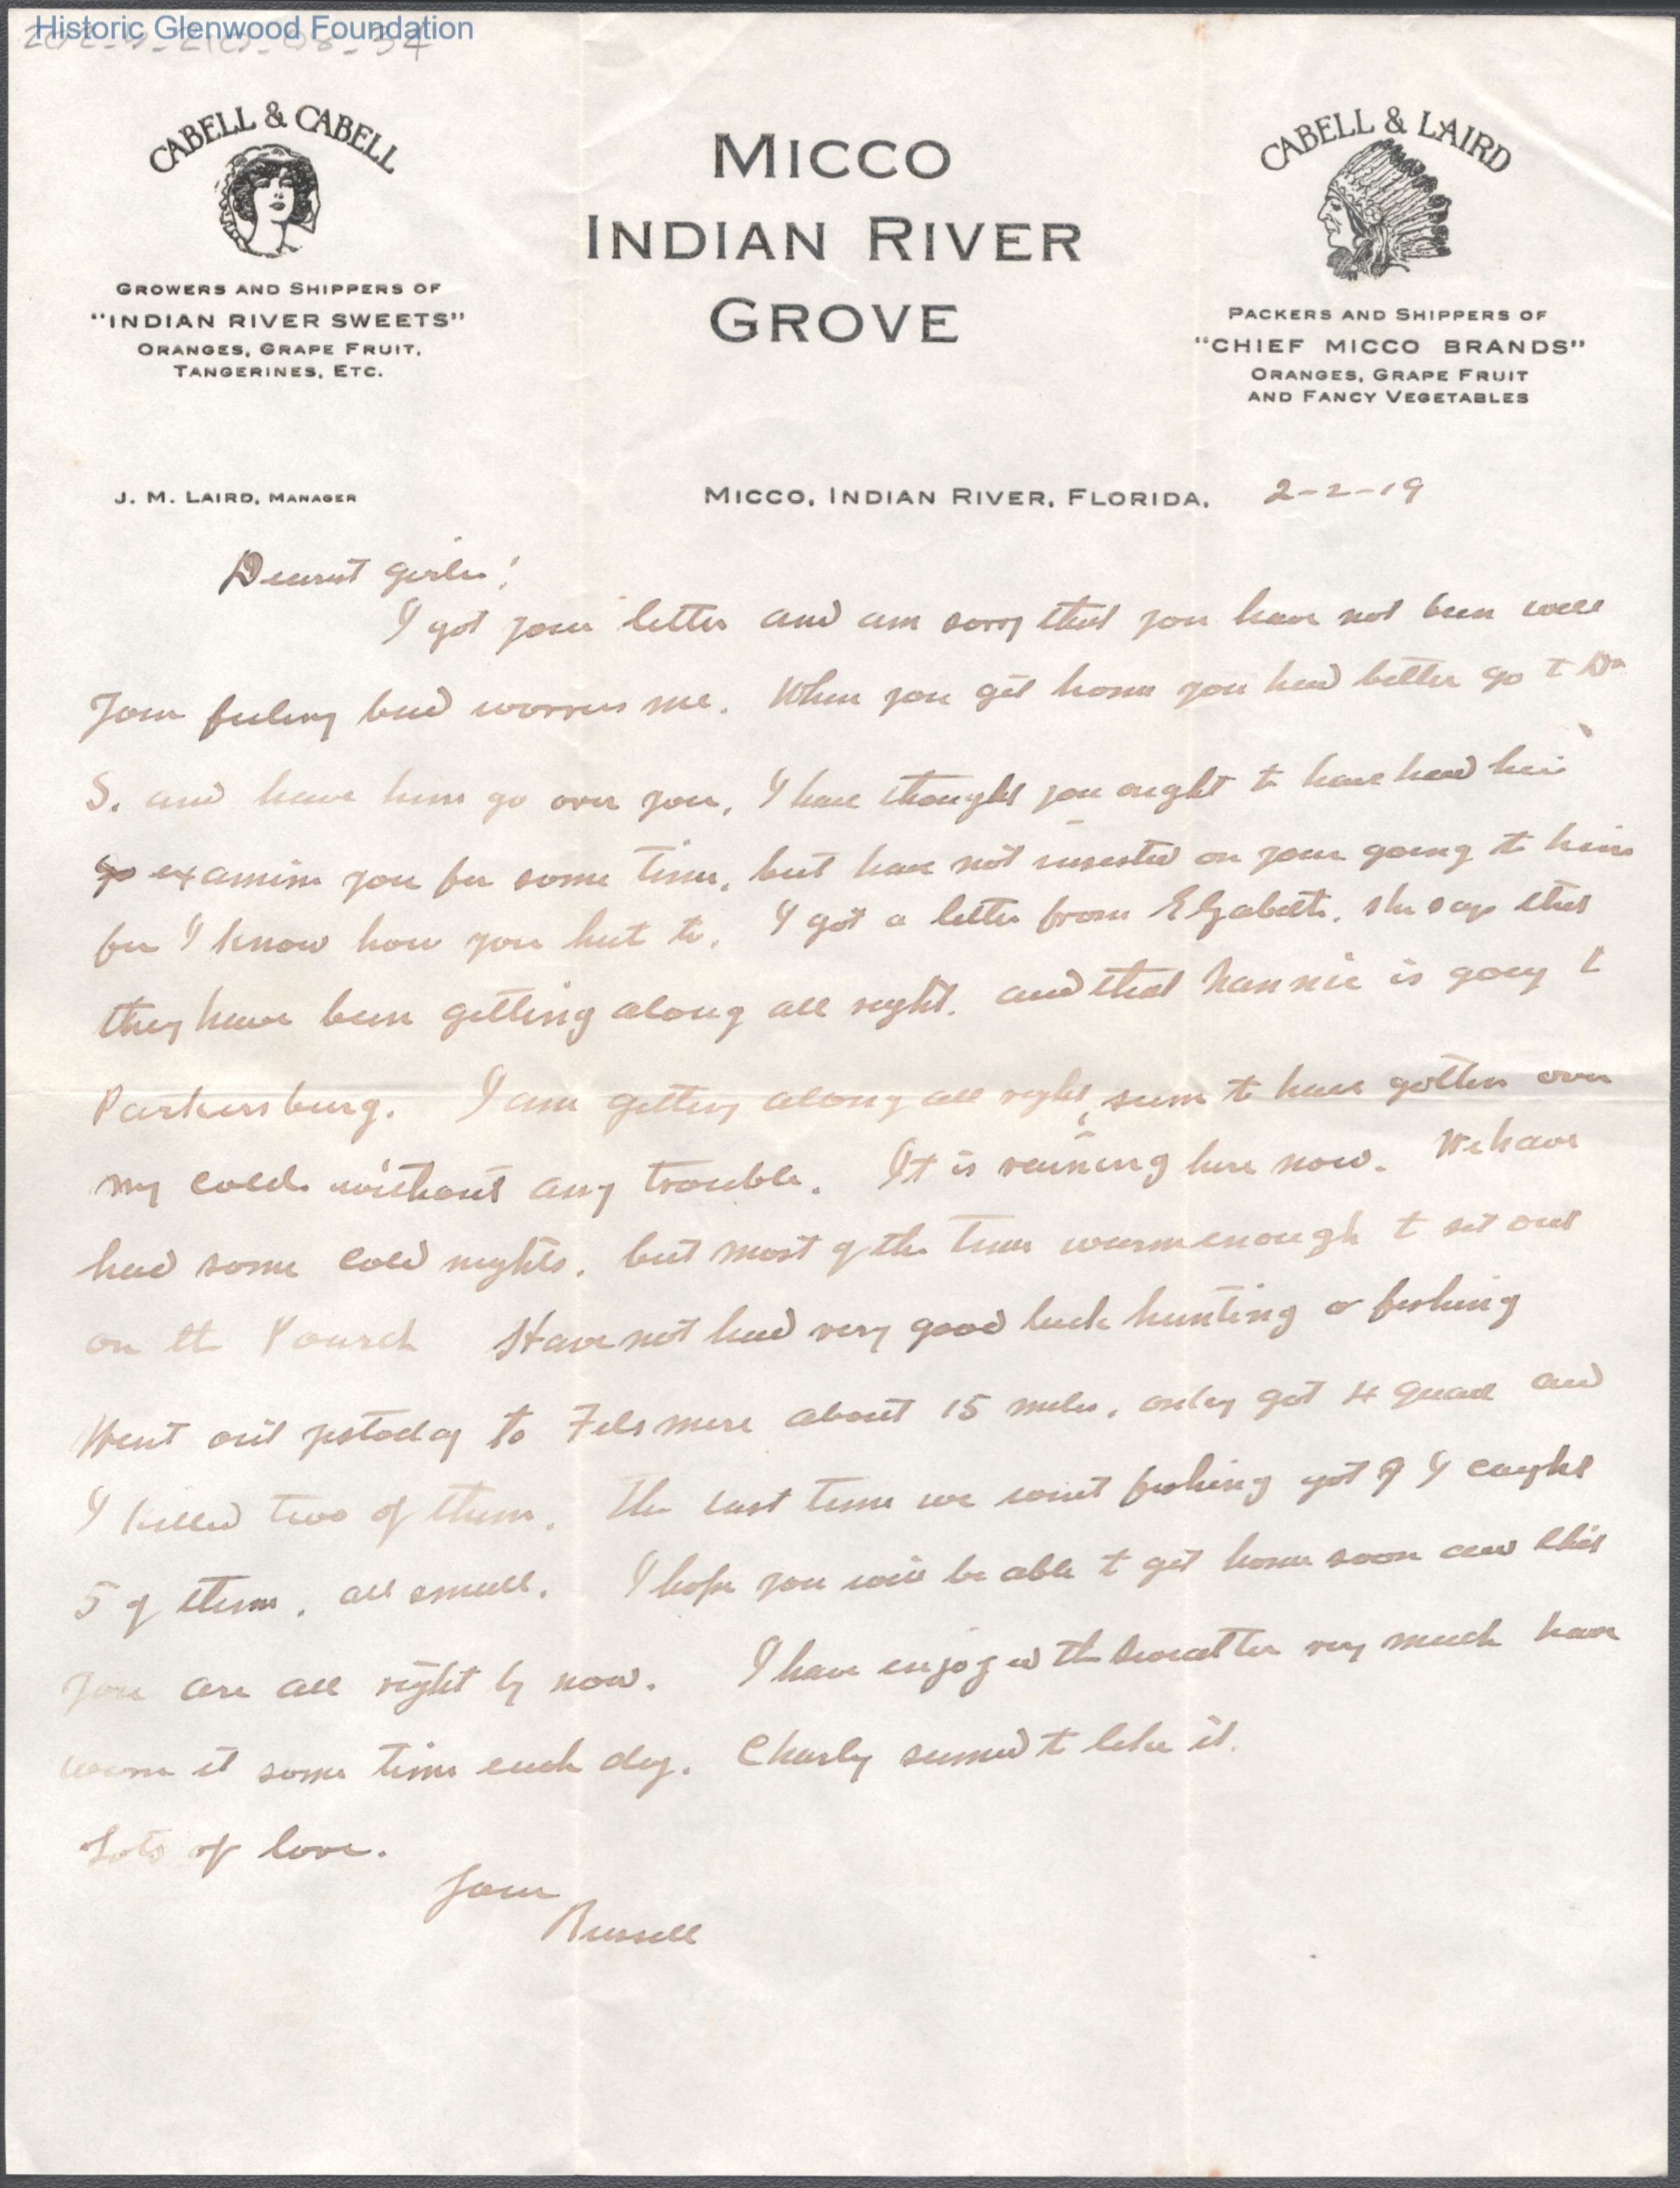 Historic Glenwood Foundation
CABELL & CABELL
GROWERS AND SHIPPERS OF
"INDIAN RIVER SWEETS"
ORANGES, GRAPE FRUIT,
TANGERINES, ETC.
MICCO
INDIAN RIVER
GROVE
CABELL & LAIRD
PACKERS AND SHIPPERS OF
"CHIEF MICCO BRANDS"
ORANGES, GRAPE FRUIT
AND FANCY VEGETABLES
J. M. LAIRD, MANAGER
MICCO, INDIAN RIVER, FLORIDA, 2-2-19
Dearest girlie!
I got your letter and am sorry that you have not been well
Your feeling bad worries me. When you get home you had better go to Dr
S. and have him go over you, I have thought you ought to have had him
go examine you for some time, but have not insisted on your going to him
for I know how you hate to. I got a letter from Elizabeth, she says that
they have been getting along all right, and that Nannie is going to
Parkersburg. I am getting along all right, seem to have gotten over
my cold without any trouble. It is raining here now. We have
had some cold nights, but most of the time warm enough to sit out
on the Pourch Have not had very good luck hunting or fishing
Went out yestoday to Felsmere about 15 miles, only got 4 quail and
I killed two of them. The last time we went fishing got 9 I caught
5 of them, all small. I hope you will be able to get home soon and that
you are all right by now. I have enjoyed the sweatter very much have
worn it some time each day. Charly seemed to like it.
Lots of love.
Your
Russell